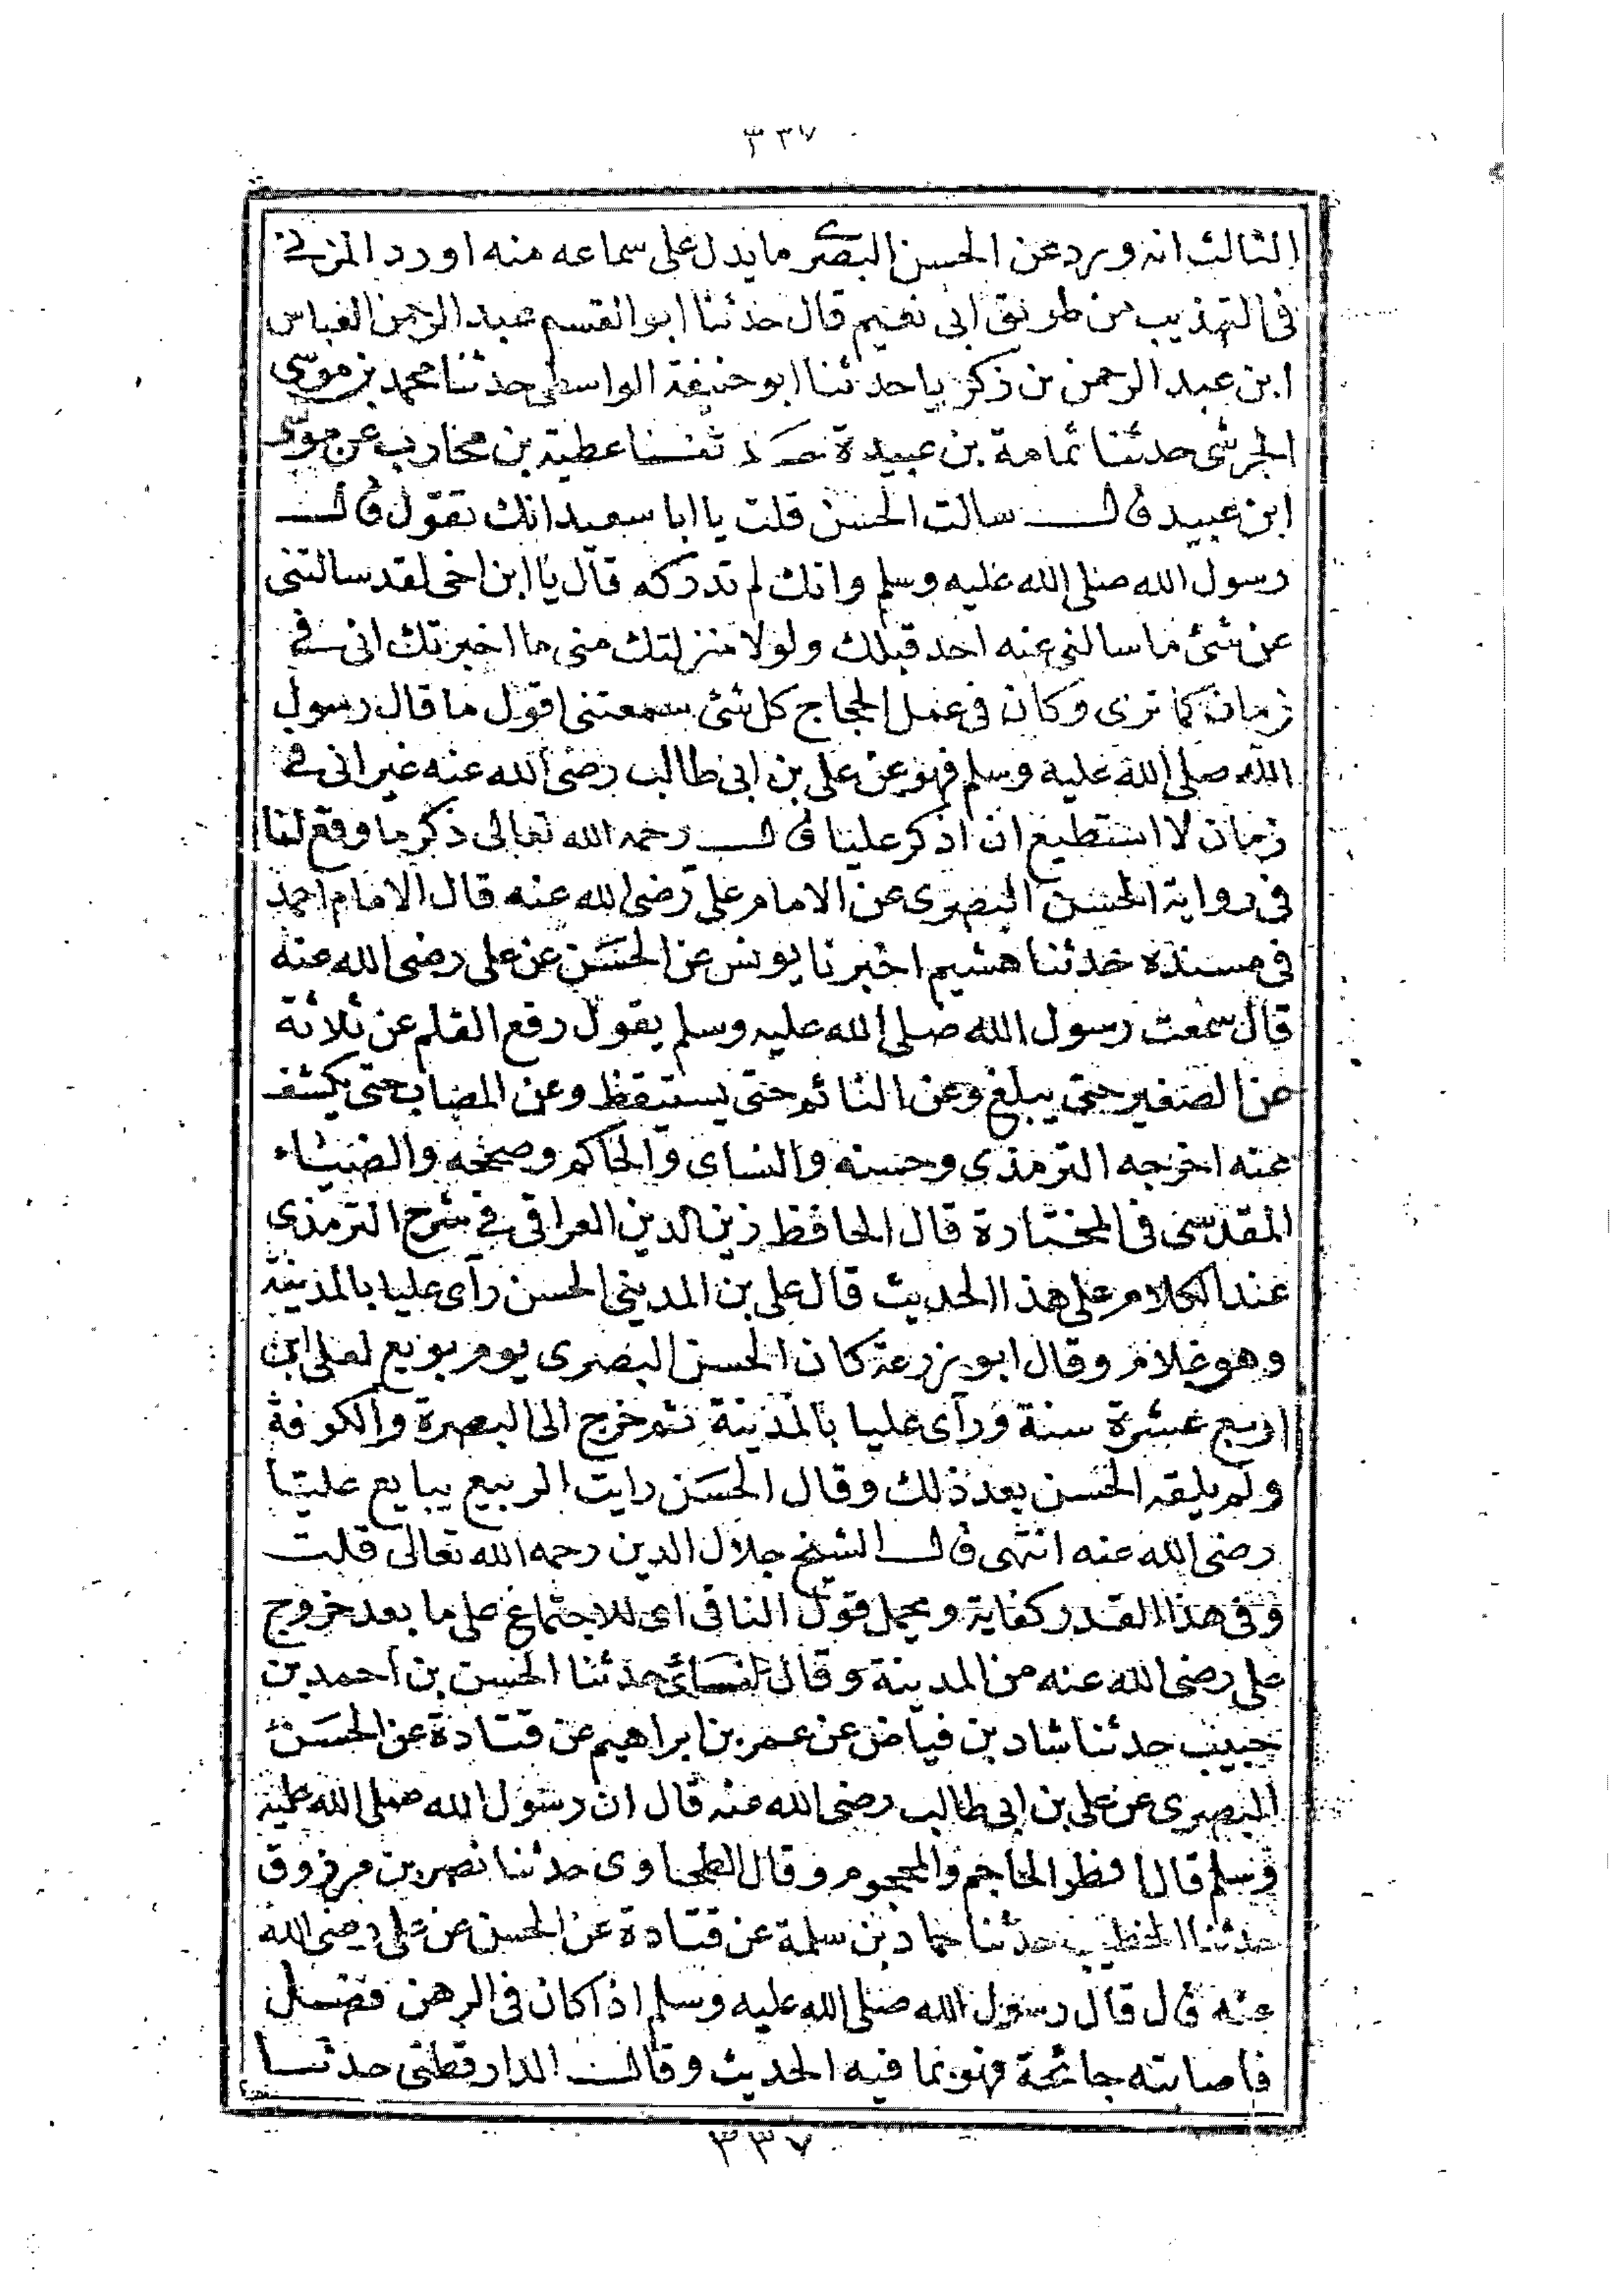 ٣٣٧
الثالث انه ورد عن الحسن البصرى ما يدل على سماعه منه اورد المزنى
فى التهذيب من طريق ابى نعيم قال حدثنا ابو القسم عبد الرحمن العباس
ابن عبد الرحمن بن زكريا حدثنا ابو حنيفة الواسطى حدثنا محمد بن موسى
الجرشى حدثنا ثمامة بن عبيدة حدثنا عطية بن محارب عن موسى
ابن عبيد قال سالت الحسن قلت يا ابا سعيد انك تقول قال
رسول الله صلى الله عليه وسلم وانك لم تدركه قال يا ابن اخى لقد سالتنى
عن شئ ما سالنى عنه احد قبلك ولولا منزلتك منى ما اخبرتك انى فى
زمان كما ترى وكان فى عمل الحجاج كل شئ سمعتنى اقول ما قال رسول
الله صلى الله عليه وسلم فهو عن على بن ابى طالب رضى الله عنه غير انى فى
زمان لا استطيع ان اذكر عليا قال رحمه الله تعالى ذكر ما وقع لنا
فى رواية الحسن البصرى عن الامام على رضى الله عنه قال الامام احمد
فى مسنده حدثنا هشيم اخبرنا يونس عن الحسن عن على رضى الله عنه
قال سمعت رسول الله صلى الله عليه وسلم يقول رفع القلم عن ثلاثة
عن الصغير حتى يبلغ وعن النائم حتى يستيقظ وعن المصاب حتى يكشف
عنه اخرجه الترمذى وحسنه والنساى والحاكم وصححه والضياء
المقدسى فى المختارة قال الحافظ زين الدين العراقى فى شرح الترمذى
عند الكلام على هذا الحديث قال على بن المدينى الحسن رآى عليا بالمدينة
وهو غلام وقال ابو زرعة كان الحسن البصرى يوم بويع لعلى ابن
اربع عشرة سنة ورآى عليا بالمدينة ثم خرج الى البصرة والكوفة
ولم يلقه الحسن بعد ذلك وقال الحسن رايت الربيع يبايع عليا
رضى الله عنه انتهى قال الشيخ جلال الدين رحمه الله تعالى قلت
وفى هذا القدر كفاية ويحمل قول النافى اى للاجتماع على ما بعد خروج
على رضى الله عنه من المدينة وقال النسائى حدثنا الحسن بن احمد بن
حبيب حدثنا شاد بن فياض عن عمر بن ابراهيم عن قتادة عن الحسن
البصرى عن على بن ابى طالب رضى الله عنه قال ان رسول الله صلى الله عليه
وسلم قال افطر الحاجم والمحجوم وقال الطحاوى حدثنا نصر بن مرزوق
حدثنا الخطيب حدثنا حماد بن سلمة عن قتادة عن الحسن عن على رضى الله
عنه قال قال رسول الله صلى الله عليه وسلم اذا كان فى الرهن فضل
فاصابته جائحة فهو بما فيه الحديث وقال الدارقطنى حدثنا
٣٣٧